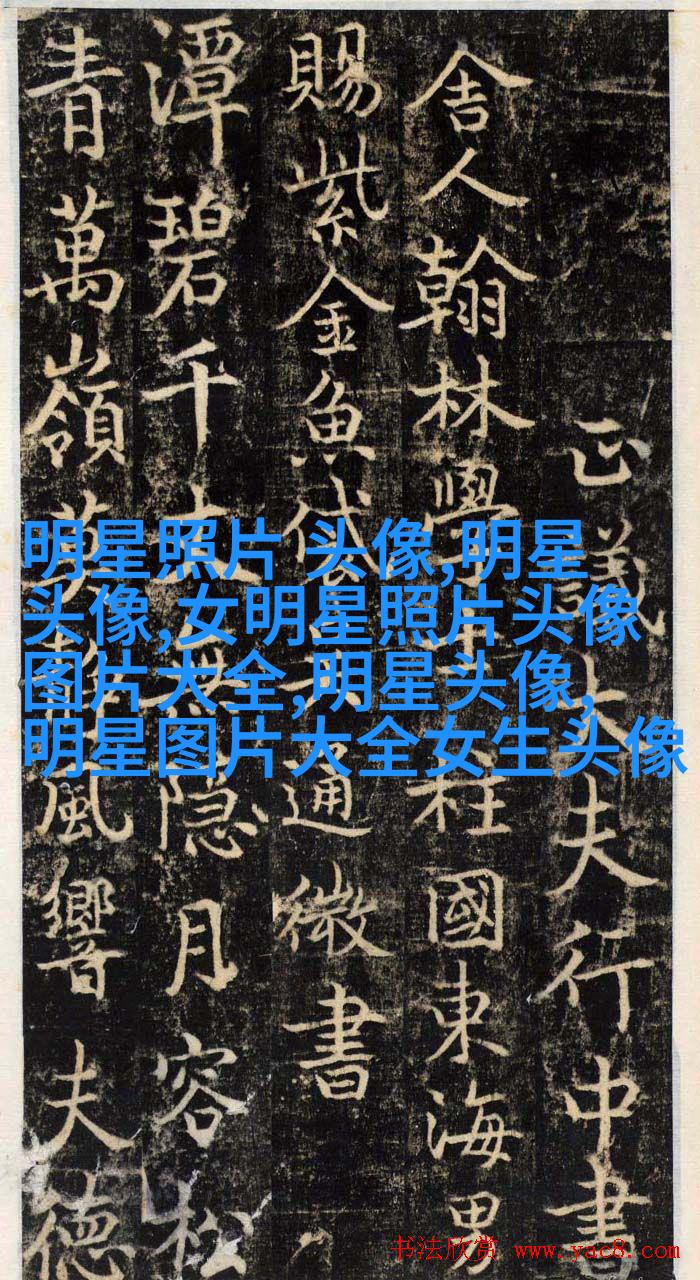 正議大夫行中書
舍人翰林學士柱國東海男
賜紫金魚袋吴通微書
潭碧千丈無隱月容松
青萬嶺莫風響夫德
明星照片 头像,明星
头像,女明星照片头像
图片大全,明星头像,
明星图片大全女生头像
书法欣赏 www.yac8.com